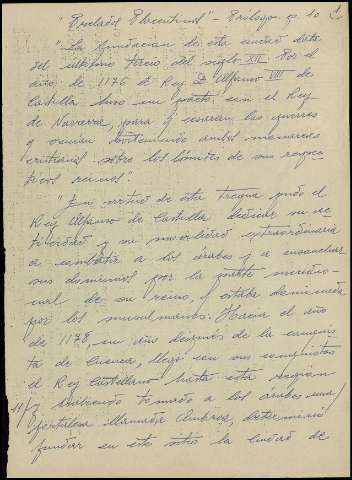 "Prelados Placentinos" - Prólogo pg 10
1
"La fundación de esta ciudad data
del último tercio del siglo XII. Por el
año de 1176 el Rey D. Alfonso VIII de
Castilla hizo un pacto con el Rey
de Navarra, para q cesaran las guerras
q venían sosteniendo ambos monarcas
cristianos sobre los límites de sus respec-
tivos reinos".
"En virtud de esta tregua pudo el
Rey Alfonso de Castilla dedicar su ac-
tividad y su movilidad extraordinaria
a combatir a los árabes y a ensanchar
sus dominios por la parte meridio-
nal de su reino, q estaba dominada
por los musulmanes. Hacia el año
de 1178, un año después de la conquis-
ta de Cuenca, llegó con sus conquistas
el Rey Castellano hasta esta región
11/ y habiendo tomado a los árabes una
fortaleza llamada Ambroz, determinó
fundar en este sitio la ciudad de